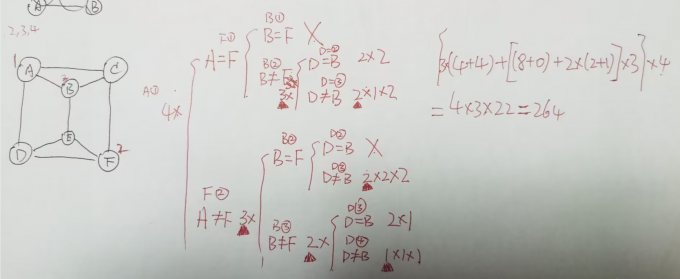 A B
2,3,4
1 A C
3 B
A① 4×
E
D F 2
F①
A=F
B①
B=F X
B②
B≠F 3×
D=②
D=B 2×2
D=③
D≠B 2×1×2
F②
A≠F 3×
B②
B=F
D②
D=B X
D③
D≠B 2×2×2
B③
B≠F 2×
D③
D=B 2×1
D④
D≠B 1×1×1
{3×(4+4)+[(8+0)+2×(2+1)]×3}×4
=4×3×22=264